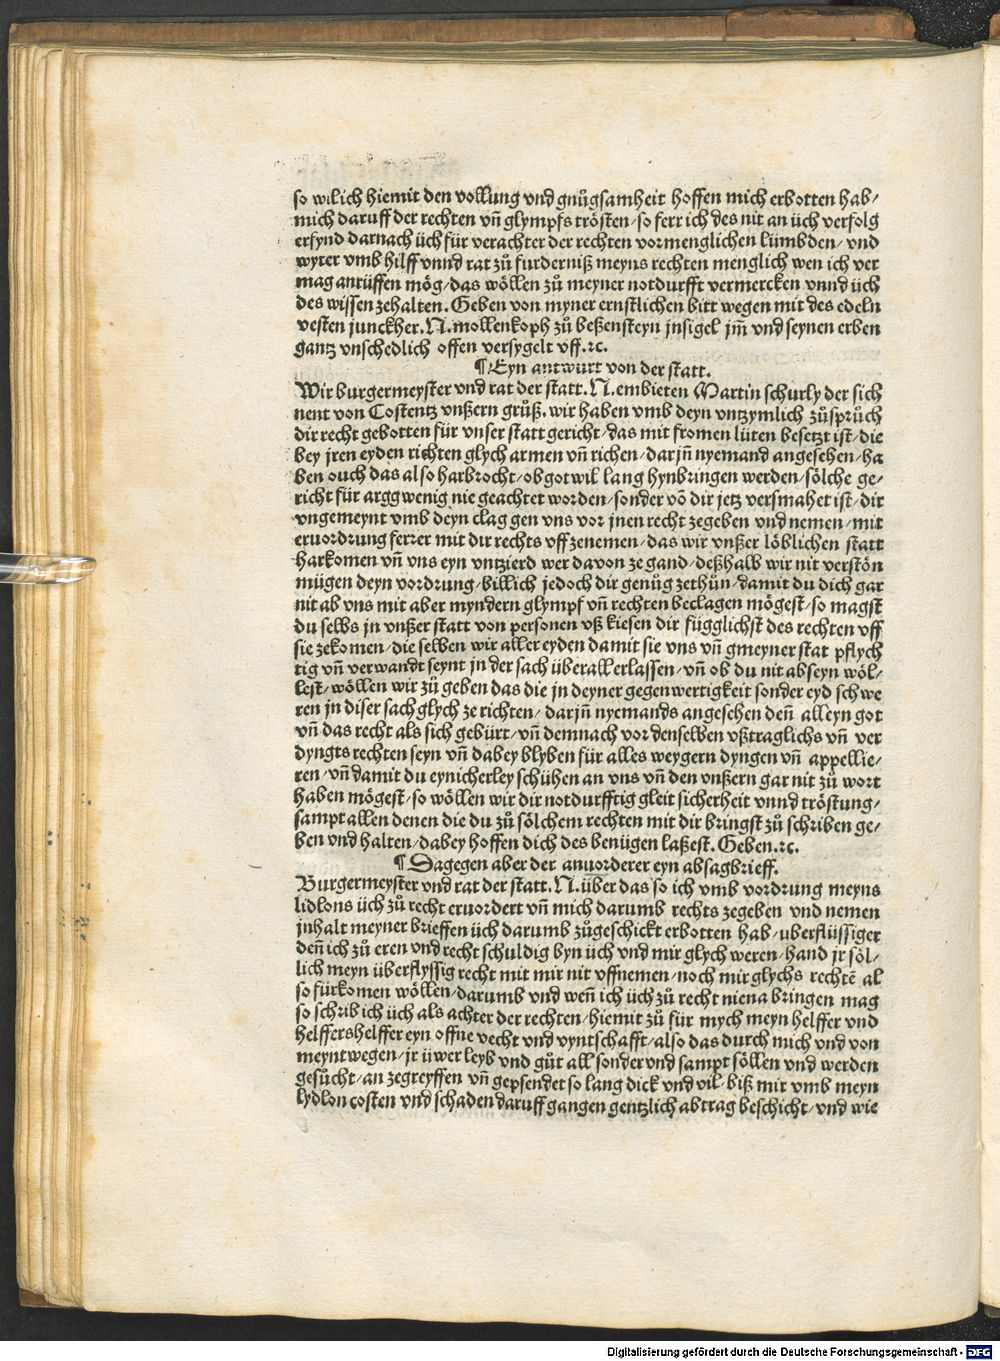 so wilich hiemit den vollung vnd gnůgsamheit hoffen mich erbotten hab/
mich daruff der rechten vñ glympfs trösten/so ferr ich des nit an üch verfolg
erfynd darnach üch für verachter der rechten vor menglichen lümbden/vnd
wyter vmb hilff vnnd rat zů furderniß meyns rechten menglich wen ich ver
mag anrüffen mög/das wöllen zů meyner notdurfft vermercken vnnd üch
des wissen zehalten. Geben von myner ernstlichen bitt wegen mit des edeln
vesten junckher. N. mollenkoph zů beßensteyn jnsigel jm̃ vnd seynen erben
gantz vnschedlich offen versygelt vff.ꝛc.
¶ Eyn antwurt von der statt.
Wir burgermeyster vnd rat der statt. N. embieten Martin schurly der sich
nent von Costentz vnßern grůß. wir haben vmb deyn vntzymlich zůsprüch
dir recht gebotten für vnser statt gericht/das mit fromen lüten besetzt ist/die
bey jren eyden richten glych armen vñ richen/darjñ nyemand angesehen/ha
ben ouch das also harbrocht/ob got wil lang hynbringen werden/sölche ge/
richt für arggwenig nie geachtet worden/sonder vō dir jetz versmahet ist/dir
vngemeynt vmb deyn clag gen vns vor jnen recht zegeben vnd nemen/mit
eruordrung ferrer mit dir rechts vff zenemen/das wir vnßer löblichen statt
harkomen vñ vns eyn vntzierd wer davon ze gand/deßhalb wir nit verstön
mügen deyn vordrung/billich jedoch dir genůg zethůn/damit du dich gar
nit ab vns mit aber myndern glympf vñ rechten beclagen mögest/so magst
du selbs jn vnßer statt von personen vß kiesen dir függlichst des rechten vff
sie zekomen/die selben wir aller eyden damit sie vns vñ gmeyner stat pflych
tig vñ verwandt seynt jn der sach überall erlassen/vñ ob du nit abseyn wöl/
lest/wöllen wir zů geben das die jn deyner gegenwertigkeit sonder eyd schwe
ren jn diser sach glych ze richten/darjñ nyemands angesehen deñ alleyn got
vñ das recht als sich gebürt/vñ demnach vor denselben vßtraglichs vñ ver
dyngts rechten seyn vñ dabey blyben für alles weygern dyngen vñ appellie/
ren/vñ damit du eynicherley schühen an vns vñ den vnßern gar nit zů wort
haben mögest/so wöllen wir dir notdurfftig gleit sicherheit vnnd tröstung/
sampt allen denen die du zů sölchem rechten mit dir bringst zů schriben ge/
ben vnd halten/dabey hoffen dich des benügen laßest. Geben.ꝛc.
¶ Dagegen aber der anuorderer eyn absagbrieff.
Burgermeyster vnd rat der statt. N. über das so ich vmb vordrung meyns
lidlons üch zů recht eruordert vñ mich darumb rechts zegeben vnd nemen
jnhalt meyner brieffen üch darumb zůgeschickt erbotten hab/uberflüssiger
deñ ich zů eren vnd recht schuldig byn üch vnd mir glych weren/hand jr söl/
lich meyn überflyssig recht mit mir nit vffnemen/noch mir glychs rechtē al
so fürkomen wöllen/darumb vnd weñ ich üch zů recht niena bringen mag
so schrib ich üch als achter der rechten/hiemit zů für mych meyn helffer vnd
helffershelffer eyn offne vecht vnd vyntschafft/also das durch mich vnd von
meynt wegen/jr üwer leyb vnd gůt all sonder vnd sampt söllen vnd werden
gesůcht/an zegreyffen vñ gepfendet so lang dick vnd vil/biß mir vmb meyn
lydlon costen vnd schaden daruff gangen gentzlich abtrag beschicht/vnd wie
Digitalisierung gefördert durch die Deutsche Forschungsgemeinschaft - DFG